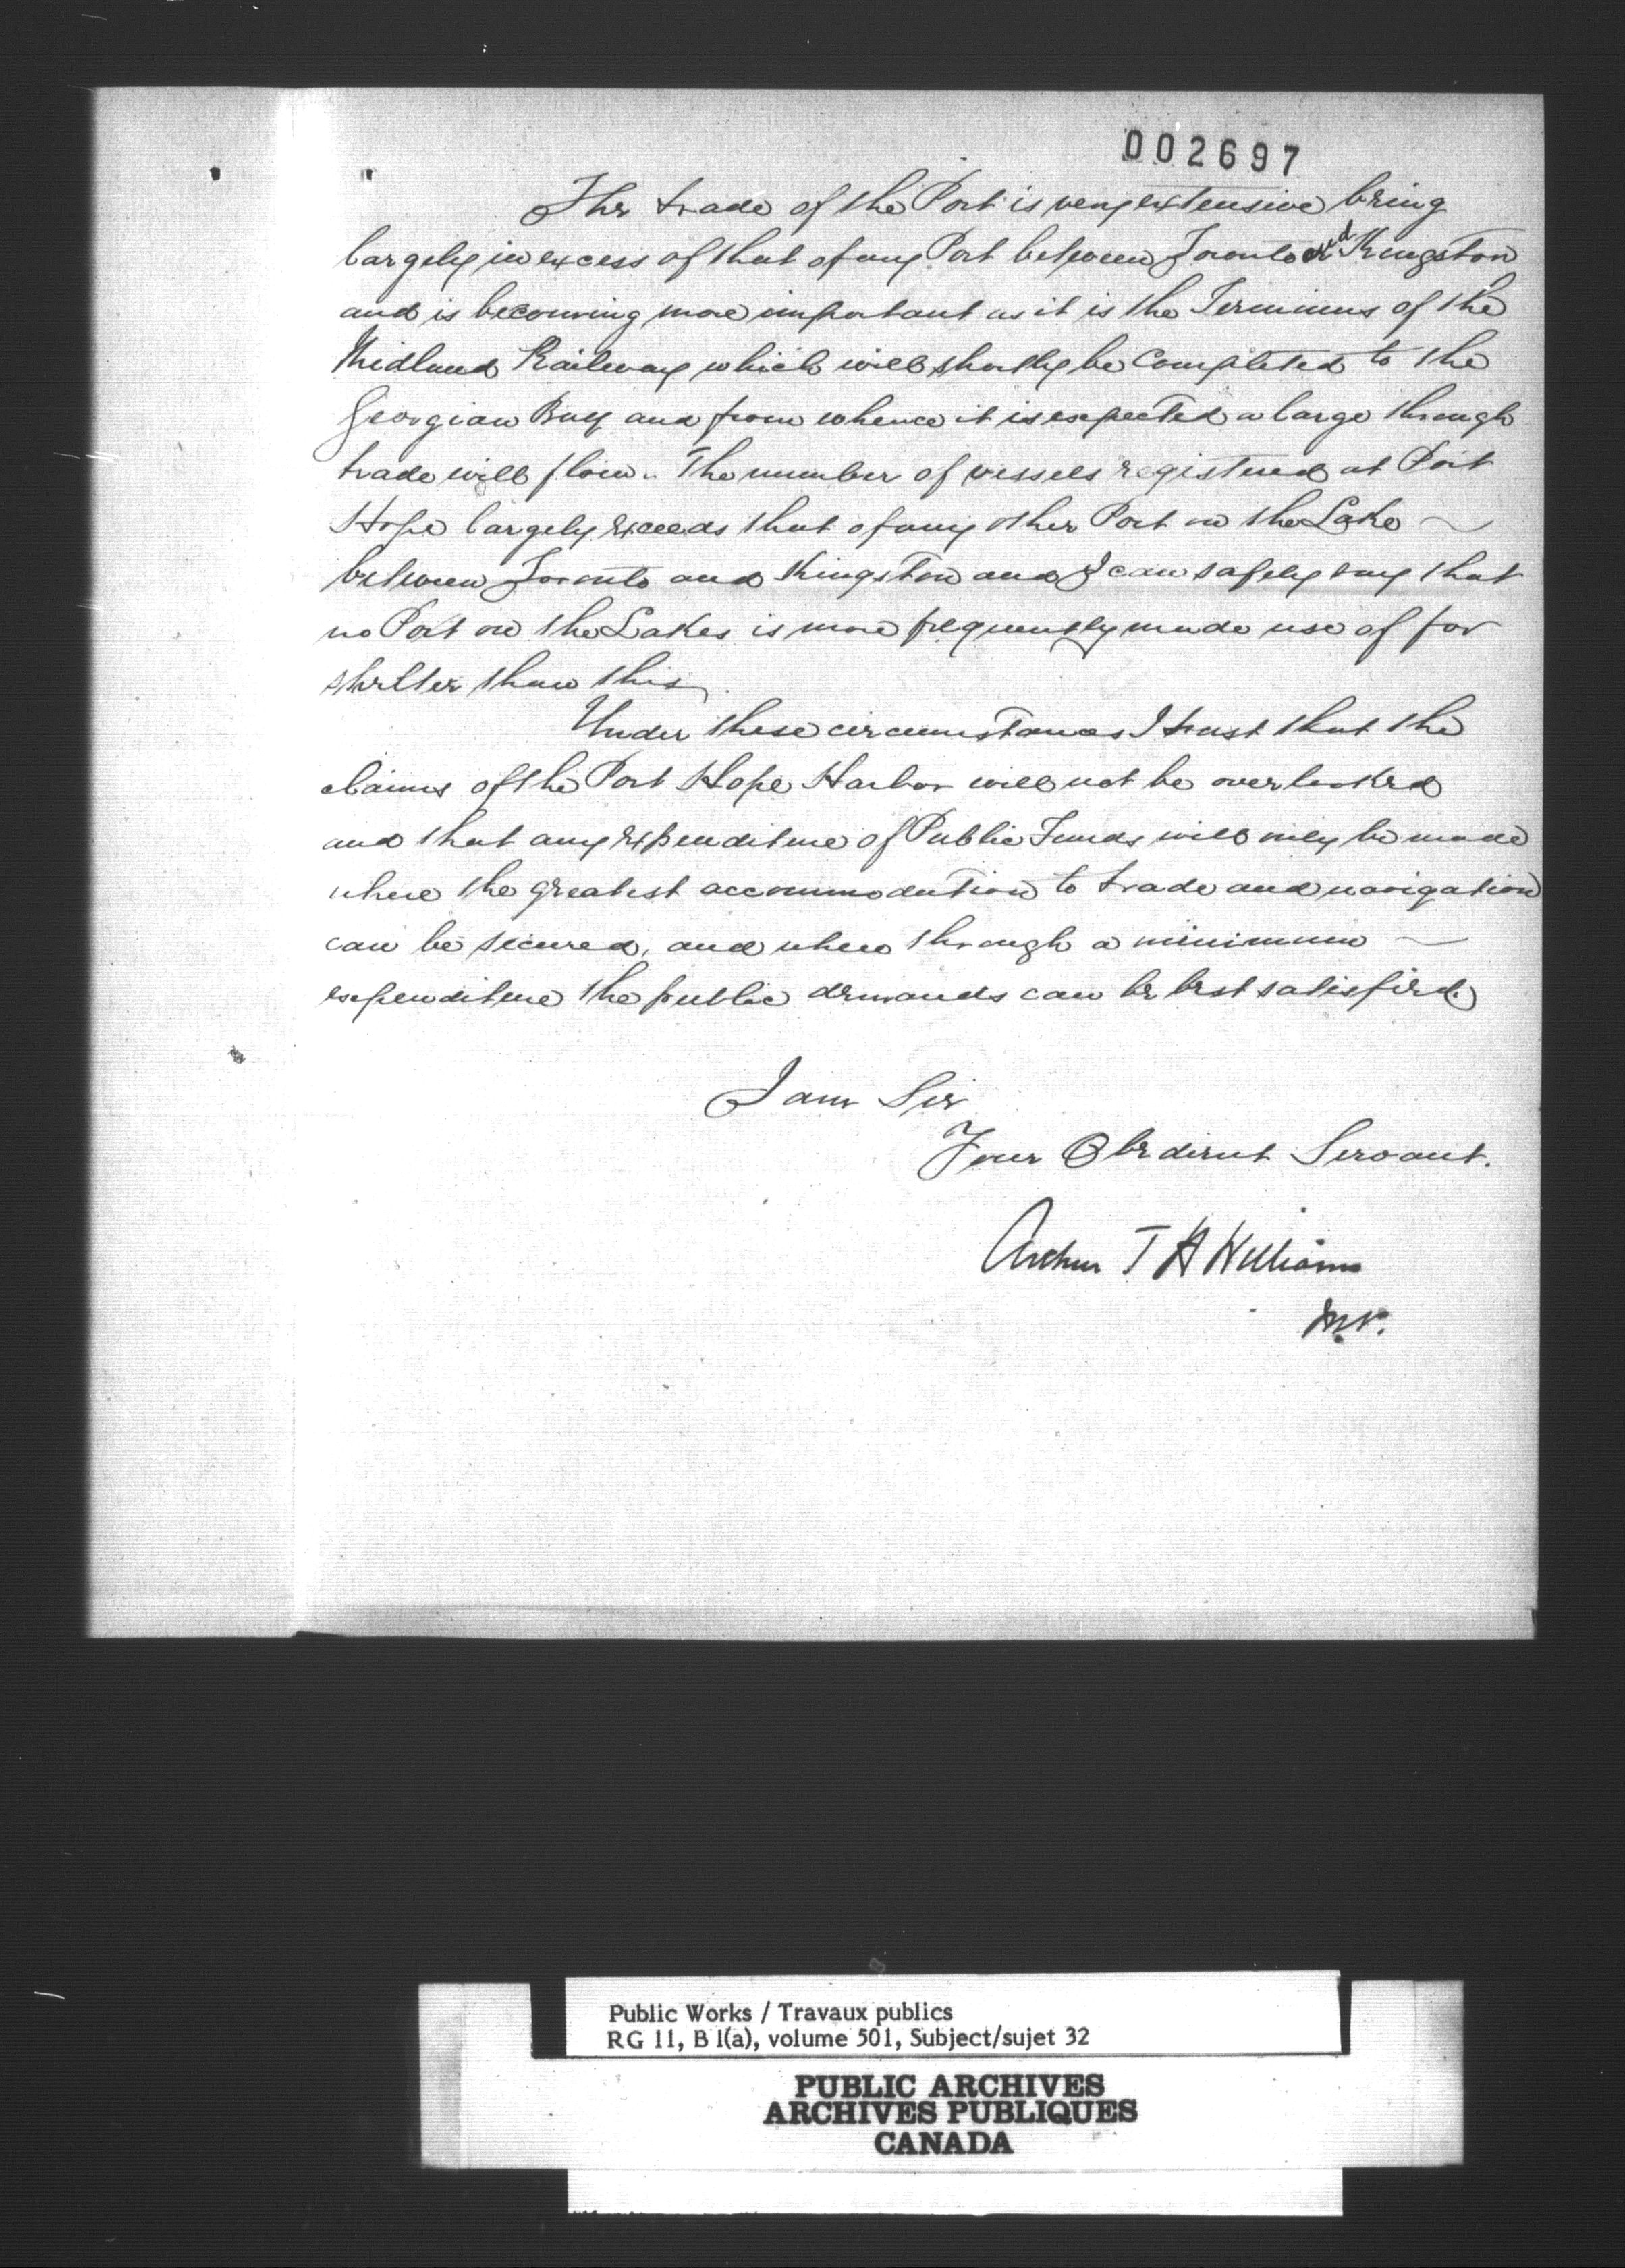 002697
The trade of the Port is very extensive being
largely in excess of that of any Port between Toronto and Kingston
and is becoming more important as it is the Terminus of the
Midland Railway which will shortly be Completed to the
Georgian Bay and from whence it is expected a large through
trade will flow. The number of vessels registered at Port
Hope largely exceeds that of any other Port on the Lake
between Toronto and Kingston and I can safely say that
no Port on the Lakes is more frequently made use of for
shelter than this
Under these circumstances I trust that the
claims of the Port Hope Harbor will not be overlooked
and that any expenditure of Public Funds will only be made
where the greatest accommodation to trade and navigation
can be secured, and where through a minimum
expenditure the public demands can be best satisfied.
I am Sir
Your Obedient Servant.
Arthur T H Williams
M.P.
Public Works / Travaux publics
RG 11, B 1(a), volume 501, Subject/sujet 32
PUBLIC ARCHIVES
ARCHIVES PUBLIQUES
CANADA